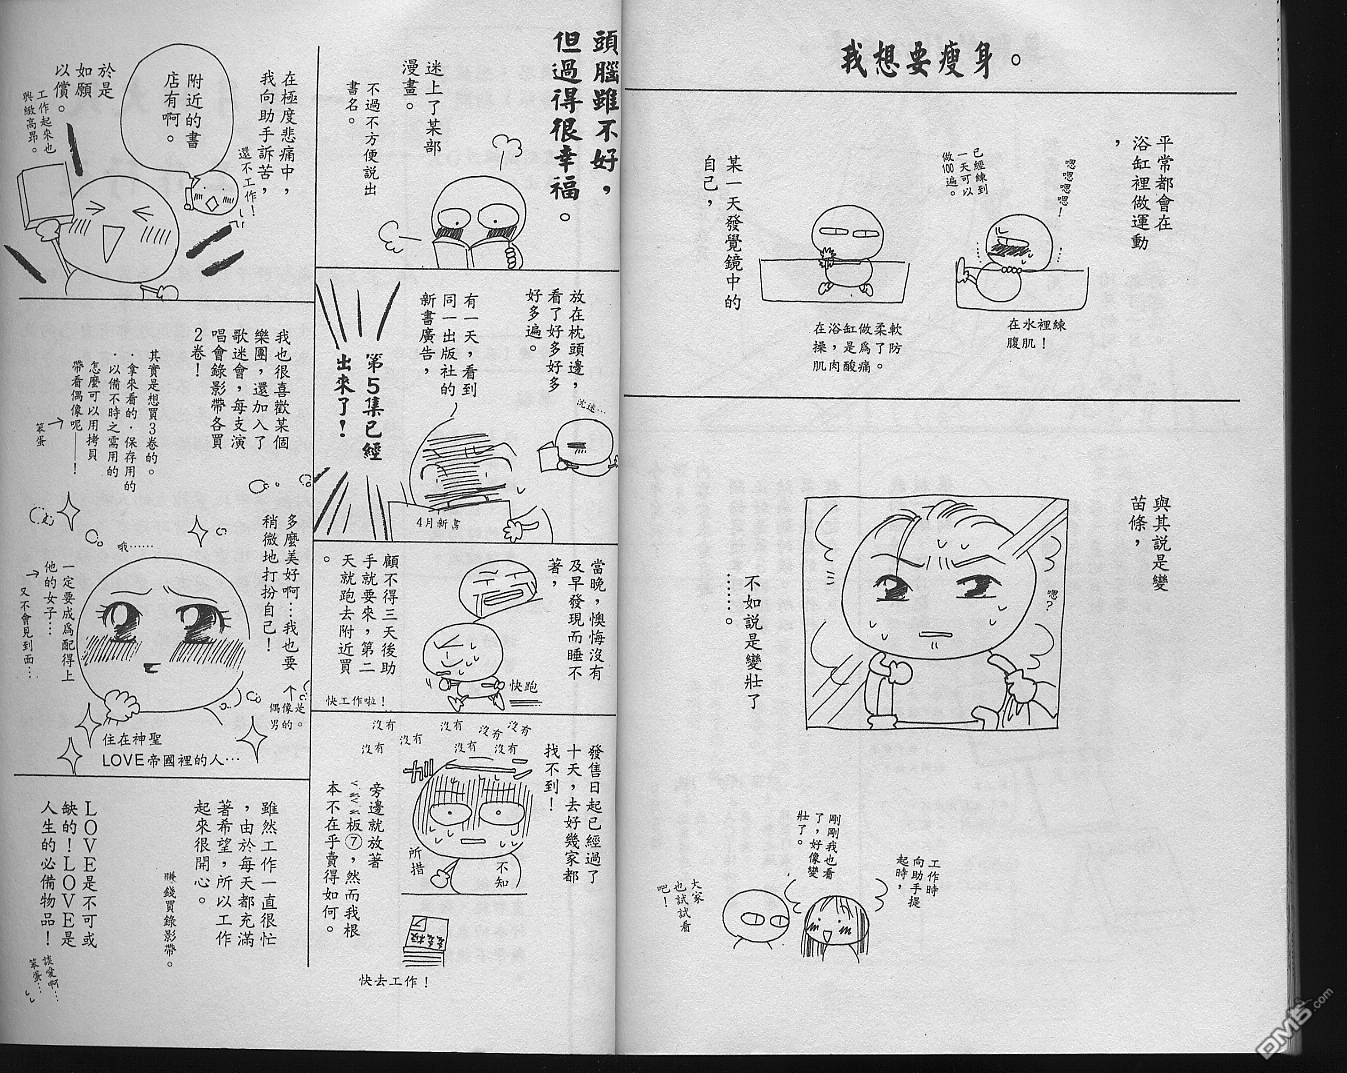 我想要瘦身。
平常都會在
浴缸裡做運動
，
嗯嗯嗯嗯！
已經練到
一天可以
做100遍。
在水裡練
腹肌！
在浴缸做柔軟
操，是為了防
肌肉酸痛。
某一天發覺鏡中的
自己，
與其說是變
苗條，
嗯？
不如說是變壯了
……。
工作時
向助手提
起時，
剛剛我也看
了，好像變
壯了。
大家
也試試看
吧！
頭腦雖不好，
但過得很幸福。
迷上了某部
漫畫。
不過不方便說出
書名。
放在枕頭邊，
看了好多好多
好多遍。
沈迷…
有一天，看到
同一出版社的
新書廣告，
第5集已經
出來了！
4月新書
當晚，懊悔沒有
及早發現而睡不
著，
顧不得三天後助
手就要來，第二
天就跑去附近買
。
快跑
快工作啦！
發售日起已經過了
十天，去好幾家都
找不到！
沒有
沒有
沒有
沒有
沒有
沒有
沒有
沒有
不知
所措
旁邊就放著
板⑦，然而我根
本不在乎賣得如何。
快去工作！
在極度悲痛中，
我向助手訴苦，
還不工作！
附近的書
店有啊。
於是
如願
以償。
工作起來也
興緻高昂。
我也很喜歡某個
樂團，還加入了
歌迷會，每支演
唱會錄影帶各買
2卷！
其實是想買3卷的。
．拿來看的．保存用的
．以備不時之需用的
怎麼可以用拷貝
帶看偶像呢——！
→
笨蛋
多麼美好啊…我也要
稍微地打扮自己！
↑
偶像是
男的。
哦……
一定要成為配得上
他的女子…
→
又不會見到面…
住在神聖
LOVE帝國裡的人…
雖然工作一直很忙
，由於每天都充滿
著希望，所以工作
起來很開心。
賺錢買錄影帶。
LOVE是不可或
缺的！LOVE是
人生的必備物品！
談愛啊…
笨蛋…
DM5.com